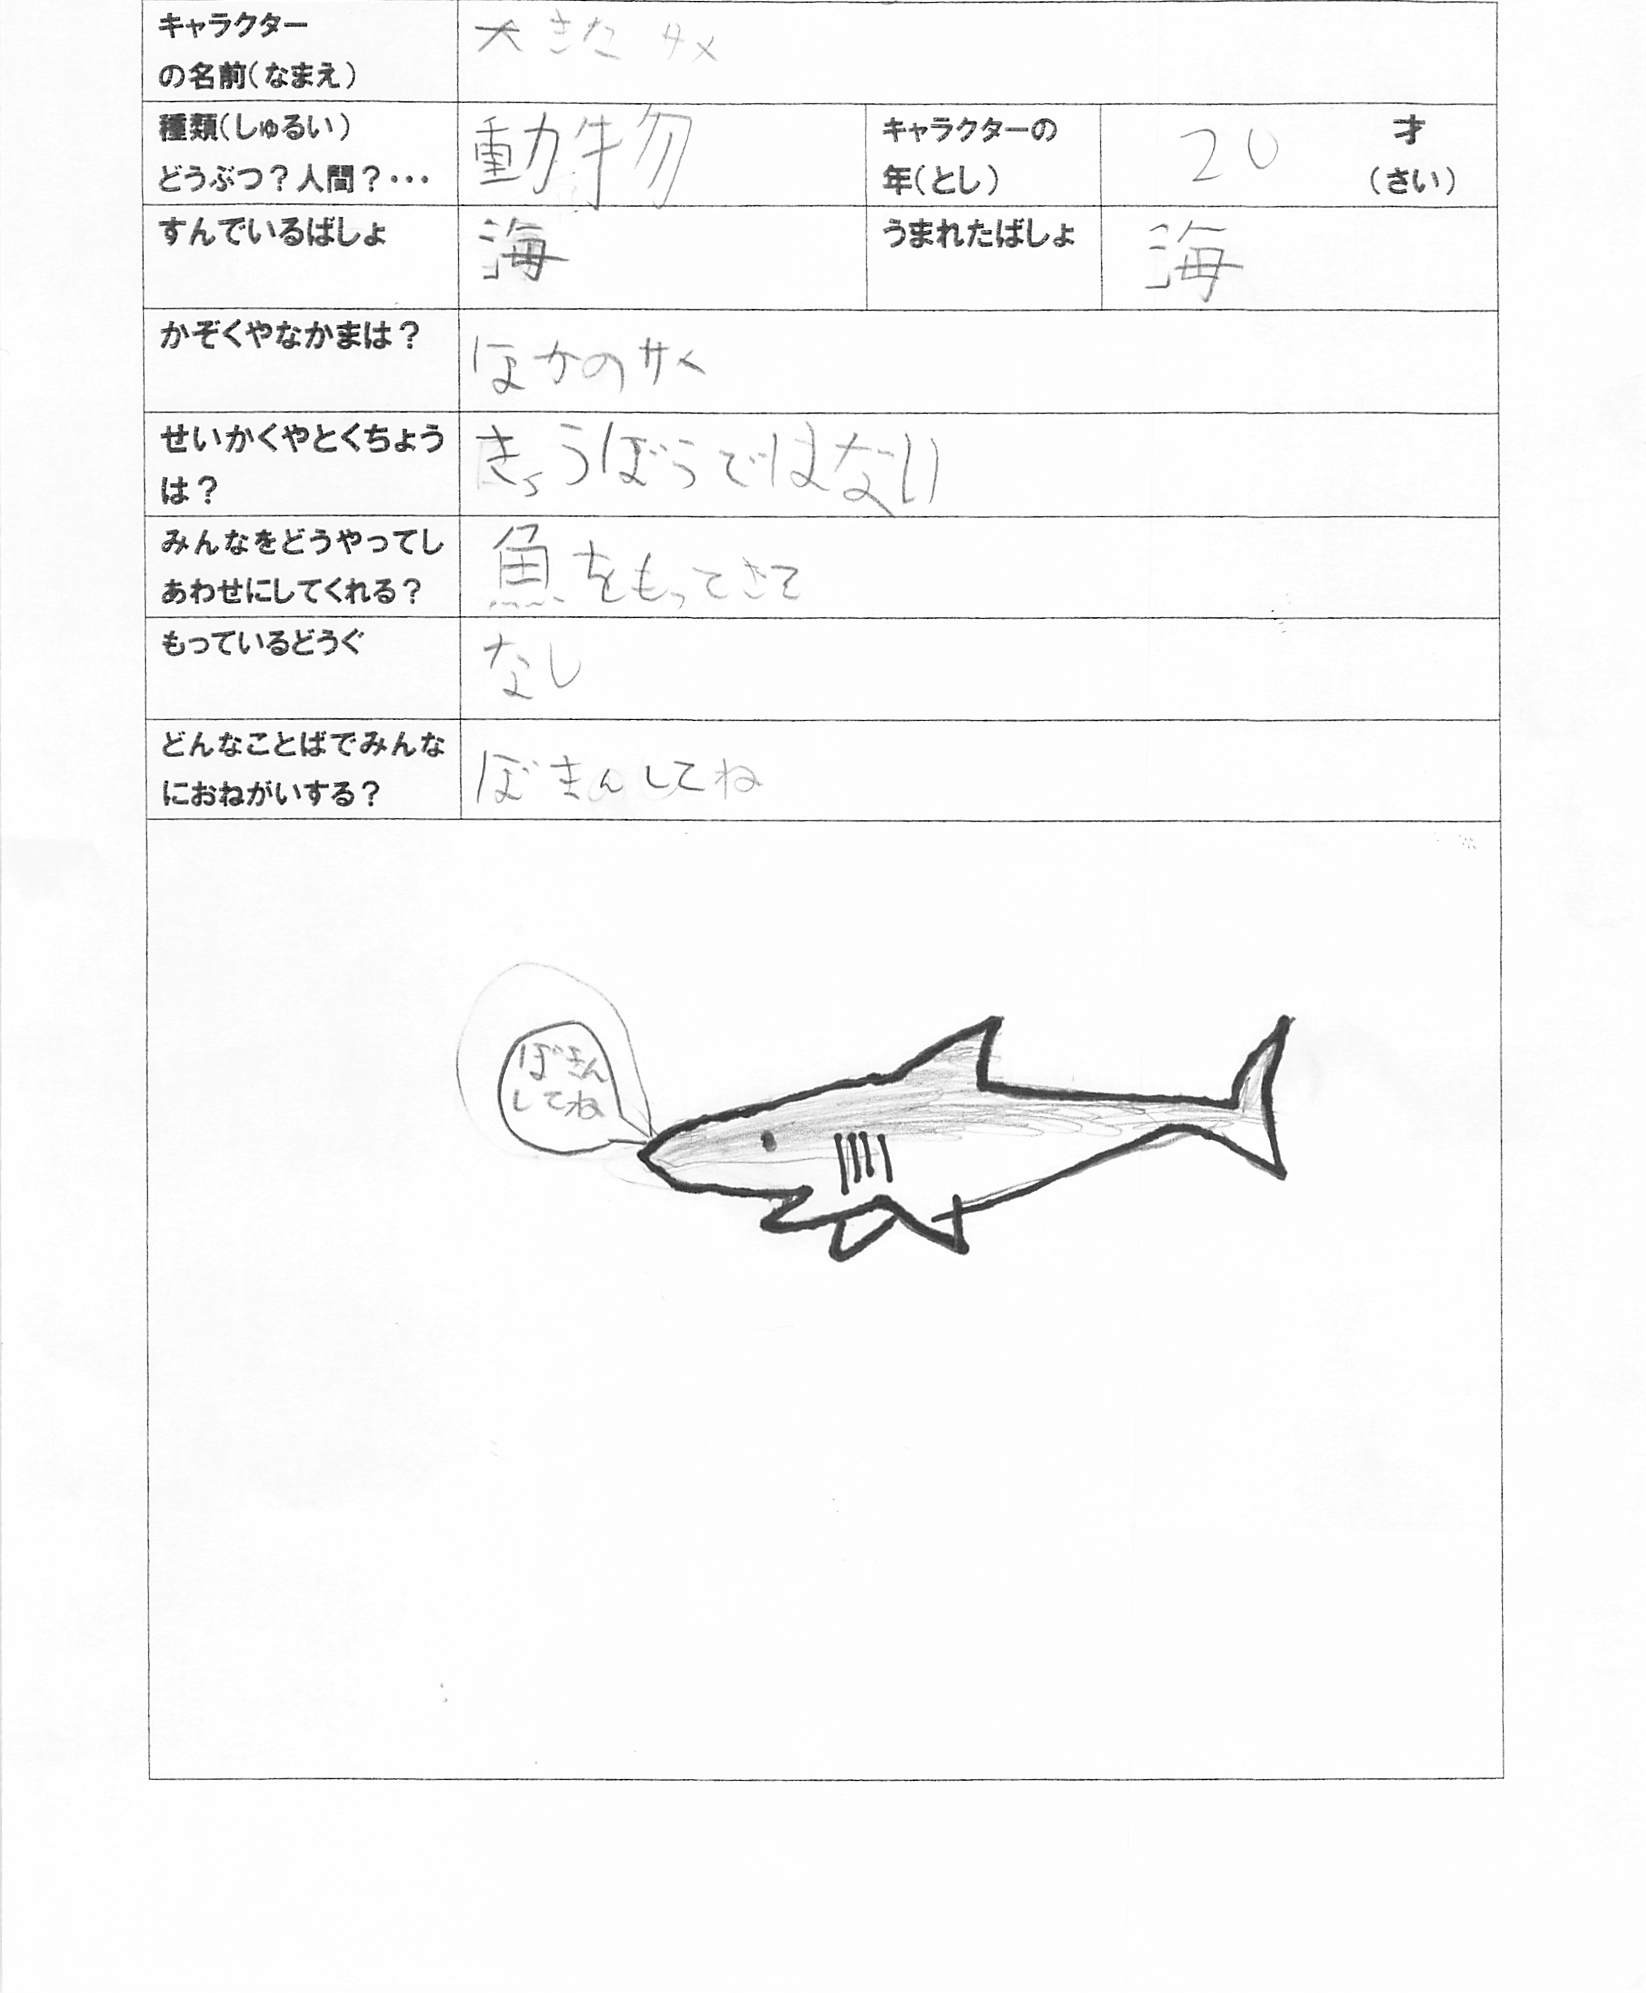 キャラクター
の名前(なまえ)
大きな サメ
種類(しゅるい)
どうぶつ?人間?・・・
動物
キャラクターの
年(とし)
20
才
(さい)
すんでいるばしょ
海
うまれたばしょ
海
かぞくやなかまは?
ほかのサメ
せいかくやとくちょう
は?
きょうぼうではない
みんなをどうやってし
あわせにしてくれる?
魚をもってきて
もっているどうぐ
なし
どんなことばでみんな
におねがいする?
ぼきんしてね
ぼきん
してね